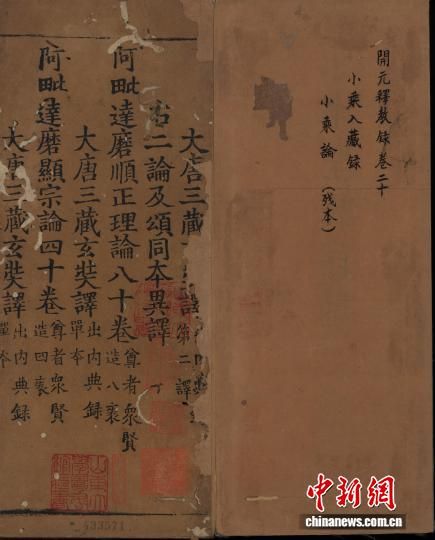 開元釋教錄卷二十
小乘入藏錄
小乘論（残本）
大唐三藏
譯
第二譯
右二論及頌同本異譯
阿毗達磨順正理論八十卷
尊者衆賢
造八袠
大唐三藏玄奘譯
出內典錄
單本
阿毗達磨顯宗論四十卷
尊者衆賢
造四袠
大唐三藏玄奘譯
出內典錄
單本
433571
中新網
chinanews.com